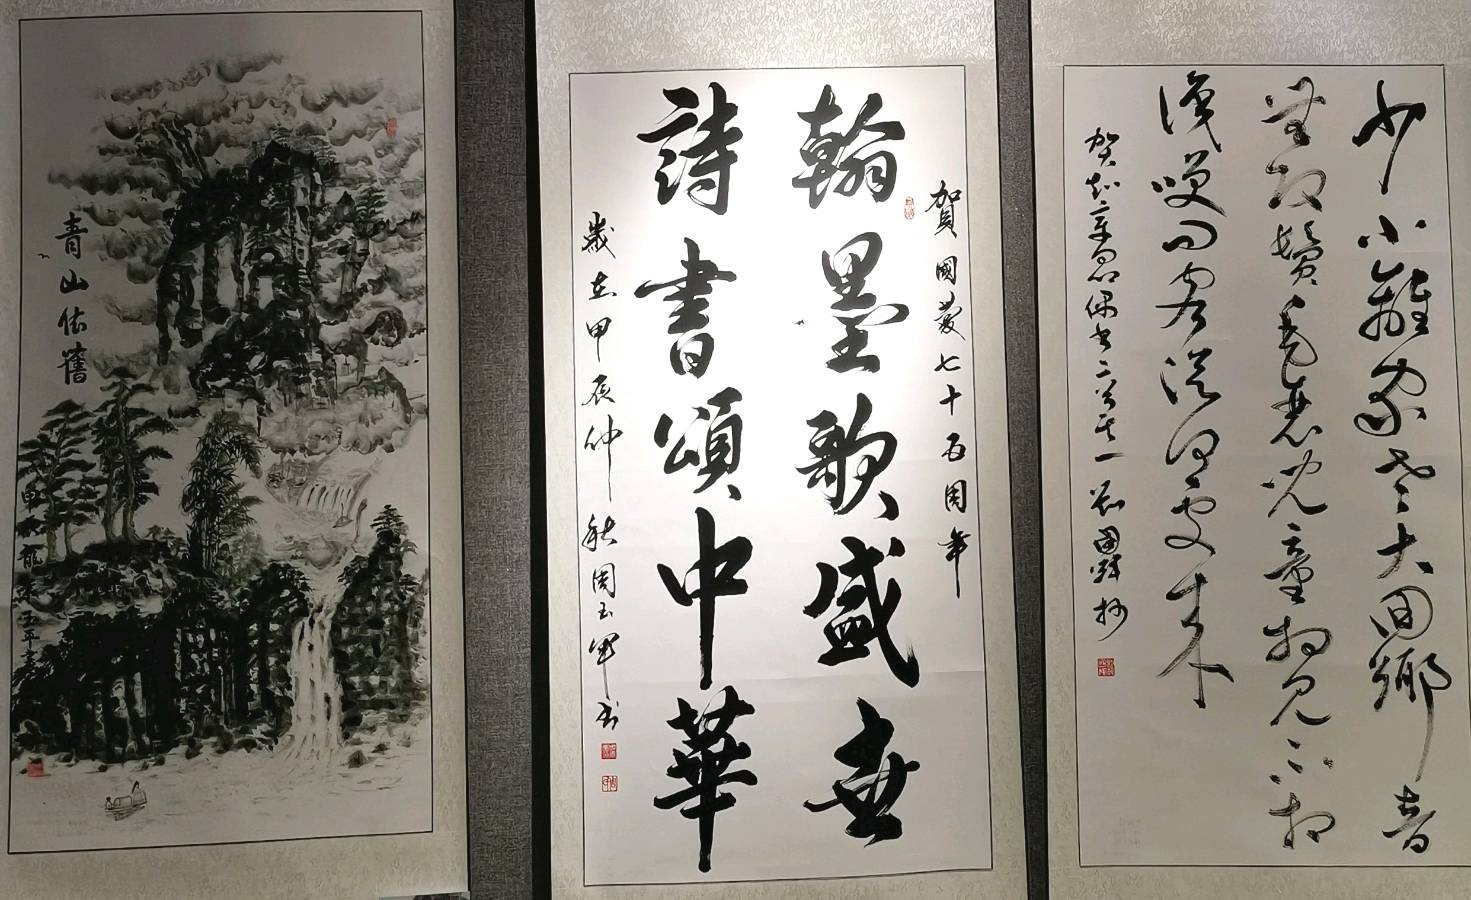 少小離家老大回鄉音
無改鬢毛衰兒童相見不相
識咲問客從何處來
贺知章回偶书二首其一
賀國慶七十五周年
翰墨歌盛世
詩書頌中華
歲在甲辰仲秋周玉軍书
青山依舊
甲辰龍年玉平